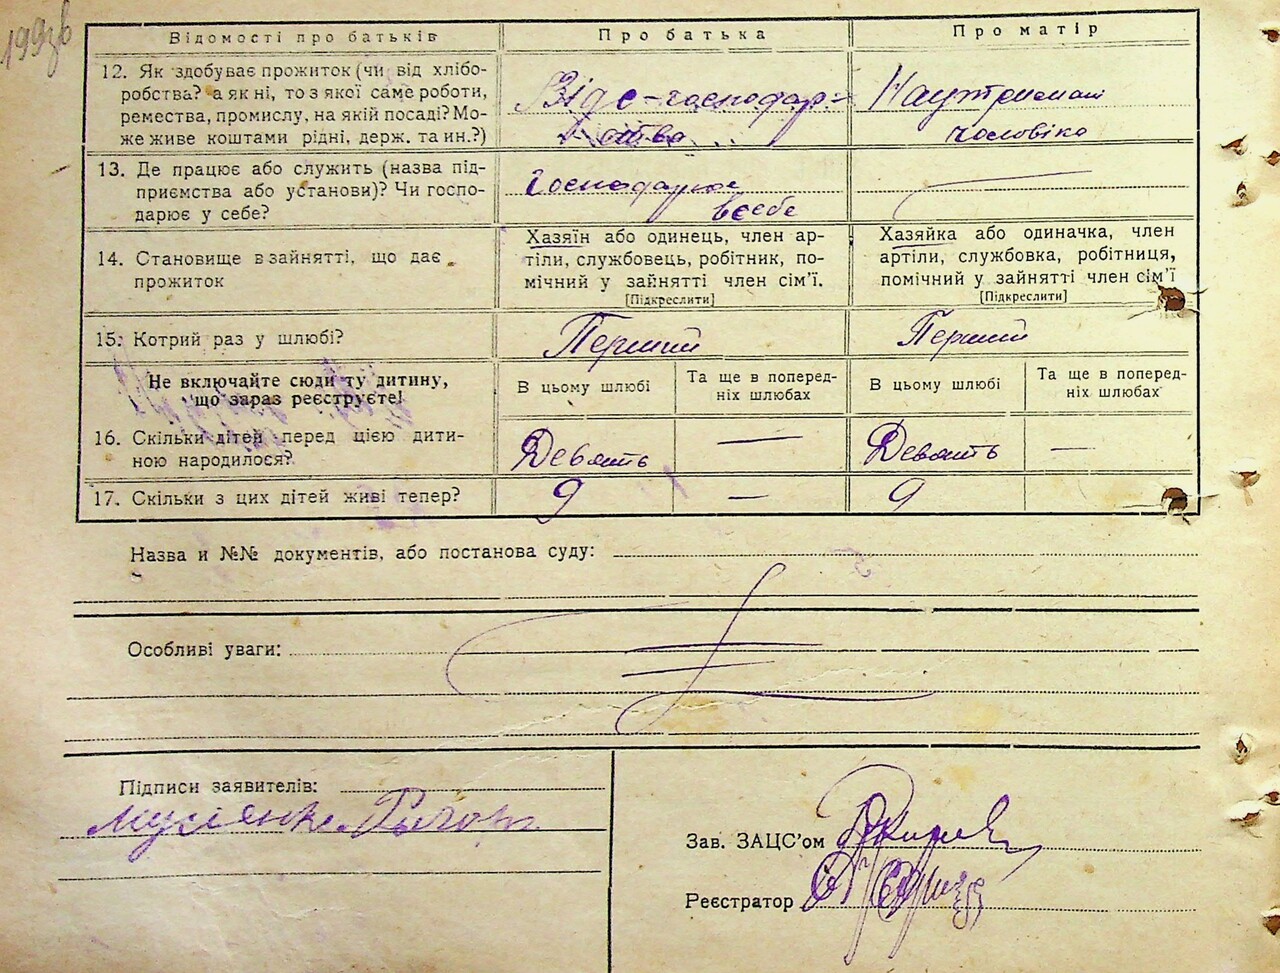 199зв
Відомості про батьків
Про батька
Про матір
12. Як здобуває прожиток (чи від хлібо-
робства? а як ні, то з якої саме роботи,
ремества, промислу, на якій посаді? Мо-
же живе коштами рідні, держ. та ин.?)
Від с-господар-
ства
На утриманї
чоловіка
13. Де працює або служить (назва під-
приємства або установи)? Чи госпо-
дарює у себе?
Господарює
всебе
14. Становище в зайнятті, що дає
прожиток
Хазяїн або одинець, член ар-
тіли, службовець, робітник, по-
мічний у зайнятті член сім'ї.
[Підкреслити]
Хазяйка або одиначка, член
артіли, службовка, робітниця,
помічний у зайнятті член сім'ї
[Підкреслити]
15. Котрий раз у шлюбі?
Перший
Перший
Не включайте сюди ту дитину,
що зараз реєструєте!
В цьому шлюбі
Та ще в поперед-
ніх шлюбах
В цьому шлюбі
Та ще в поперед-
ніх шлюбах
16. Скільки дітей перед цією дити-
ною народилося?
Девять
—
Девять
—
17. Скільки з цих дітей живі тепер?
9
—
9
—
Назва и №№ документів, або постанова суду:
Особливі уваги:
Підписи заявителів:
Мусієнко
Зав. ЗАЦС'ом
Реєстратор